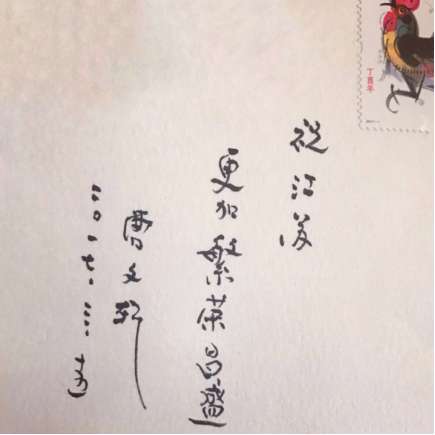 祝江苏
更加繁荣昌盛
曹文轩
二〇一七.三.
丁酉年